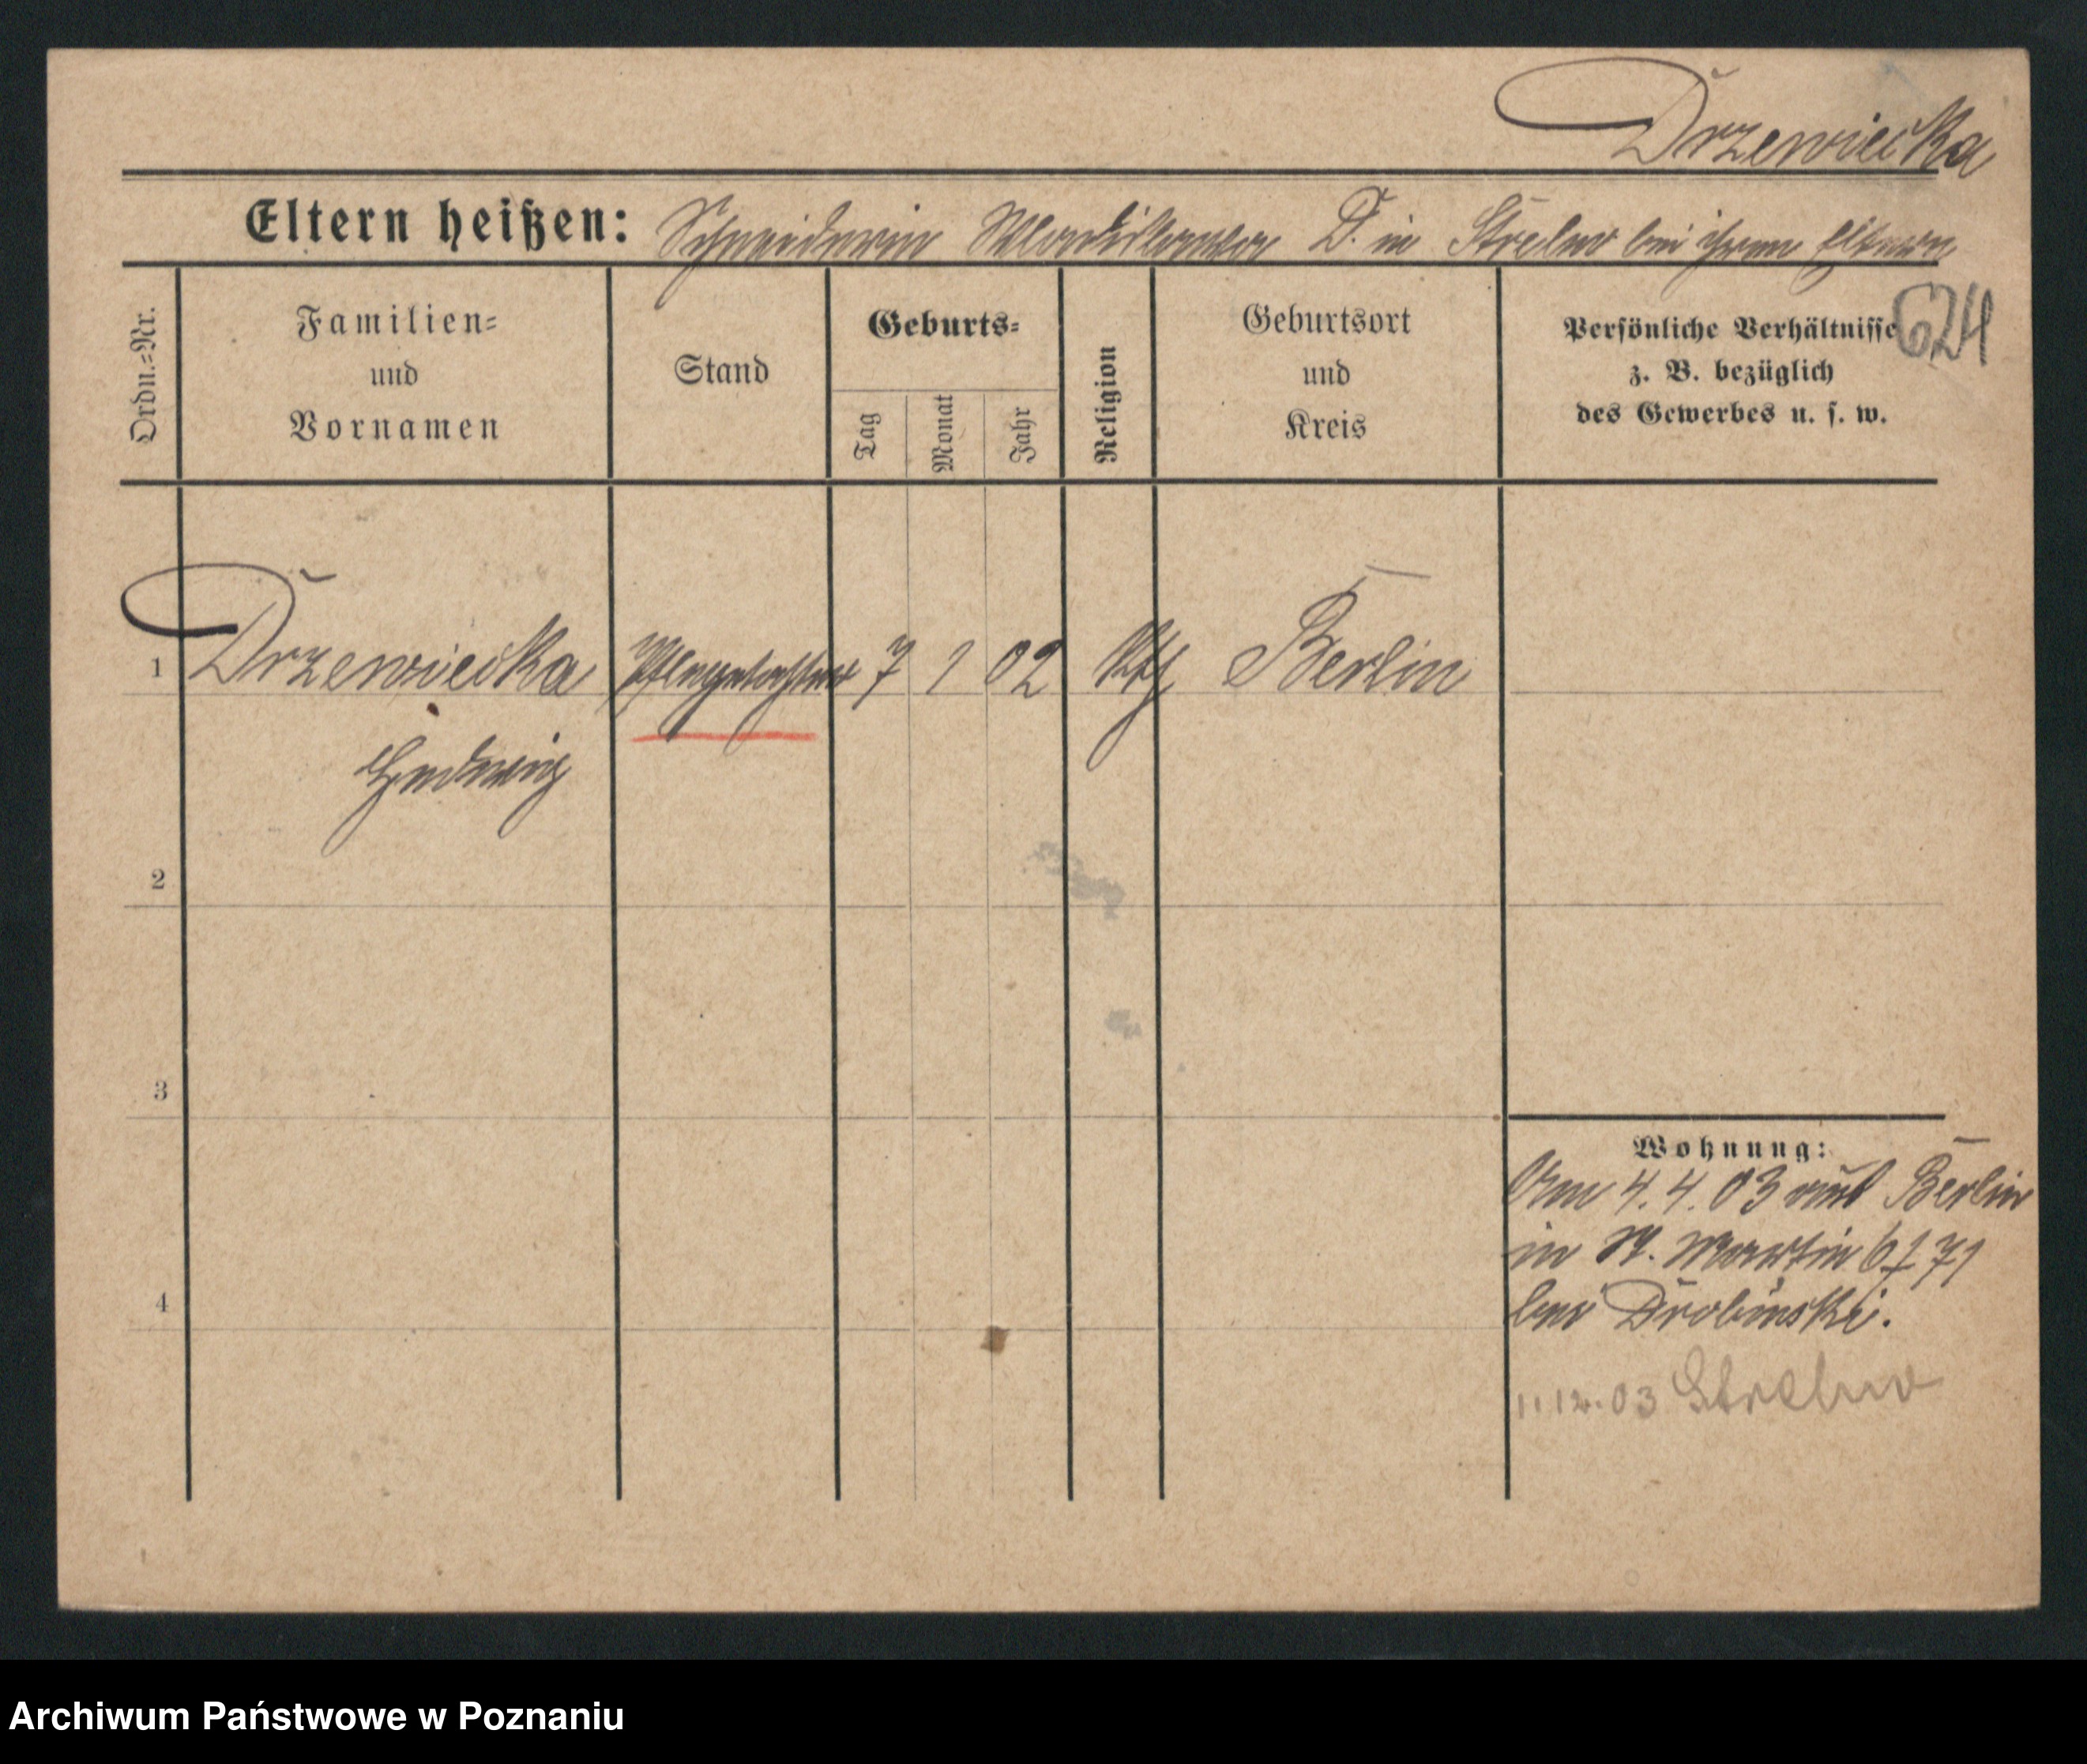 Drzewiecka
Eltern heißen: Schneiderin Wladislawa D. in Strelno bei ihren Eltern
624
Ordn.=Nr.
Familien=
und
Vornamen
Stand
Geburts=
Tag
Monat
Jahr
Religion
Geburtsort
und
Kreis
Persönliche Verhältnisse
z. B. bezüglich
des Gewerbes u. s. w.
1 Drzewiecka Pflegetochter 7 1 02 kth Berlin
Hedwig
2
3
4
Wohnung:
Am 4.4.03 aus Berlin
in St. Martin 71
bei Drobinski.
12.03 Strelno
Archiwum Państwowe w Poznaniu